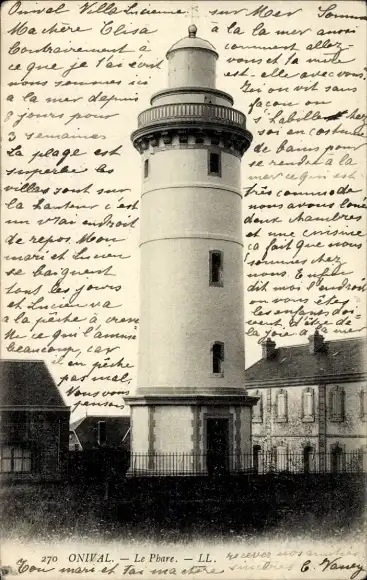 Onival Villa Lucienne sur Mer Somme
Ma chère Elisa
Contrairement à
ce que je t'ai écrit
nous sommes ici
à la mer depuis
8 jours pour
3 semaines
La plage est
superbe les
villas sont sur
la hauteur c'est
un vrai endroit
de repos. Mon
mari et Lucien
se baignent
tous les jours
et Lucien va
à la pêche à
Ne ce qui l'amuse
beaucoup, car
il en pêche
pas mal.
Vous vous
à la mer aussi
comment allez-
vous et ta mère
est-elle avec vous.
Ici on vit sans
façon ou
s'habille chez
soi en costume
de bains pour
se rendre à la
mer ce qui est
très commode
nous avons loué
deux chambres
et une cuisine
ça fait que nous
sommes chez
nous. Enfin
dit moi l'endroit
ou vous êtes
les enfants doi-
vent d'être de
la joie à la mer
270 ONIVAL. — Le Phare. — LL.
recevez nos
Ton mari et toi ma chère
sincères E. Vancy